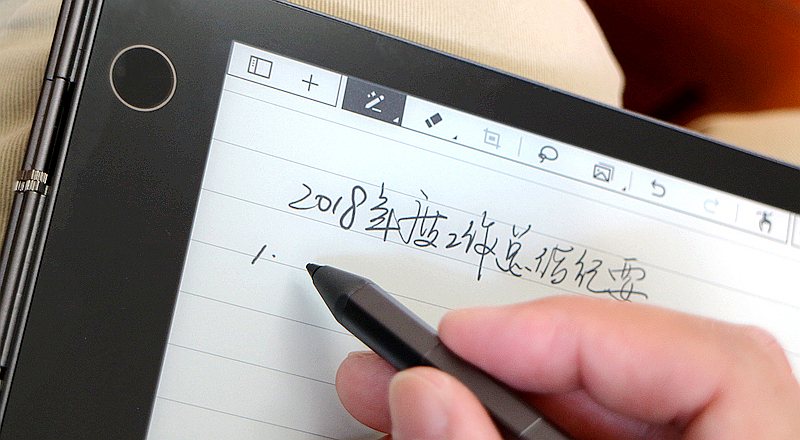 2018年度工作总结纪要
1.